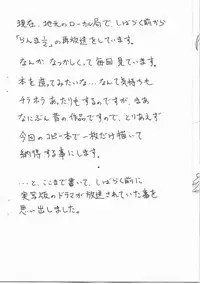 現在、地元のローカル局で、しばらく前から
「らんま1/2」の再放送をしています。
なんか なつかしくて 毎回 見ています。
本を 造ってみたいな…なんて気持ちも
チラホラ あったりもするのですが、まあ
なにぶん 昔の作品ですので、とりあえず
今回の コピー本で 一枚だけ描いて
納得する事にします。
・
…と、ここまで書いて、しばらく前に
実写版のドラマが放送されていた事を
思い出しました。